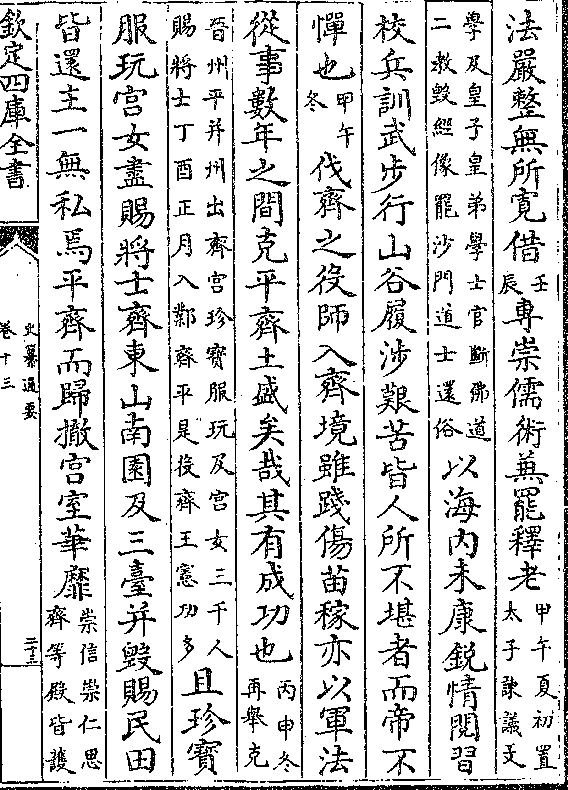 法嚴整無所寛借壬辰專崇儒術兼罷釋老甲午夏初置太子諫議文
學及皇子皇弟學士官斷佛道二教毀經像罷沙門道士還俗以海内未康銳情閱習
校兵訓武步行山谷履涉艱苦皆人所不堪者而帝不
憚也甲午冬伐齊之役師入齊境雖踐傷苗稼亦以軍法
從事數年之間克平齊土盛矣哉其有成功也丙申冬再舉克
晉州平并州出齊宫珍寳服玩及宫女三千人賜將士丁酉正月入鄴齊平是役齊王憲功多且珍寳
服玩宫女盡賜將士齊東山南園及三臺并毀賜民田
皆還主一無私焉平齊而歸撤宫室華靡崇信崇仁思齊等殿皆護
欽定四庫全書
史纂通要
卷十三
二十三